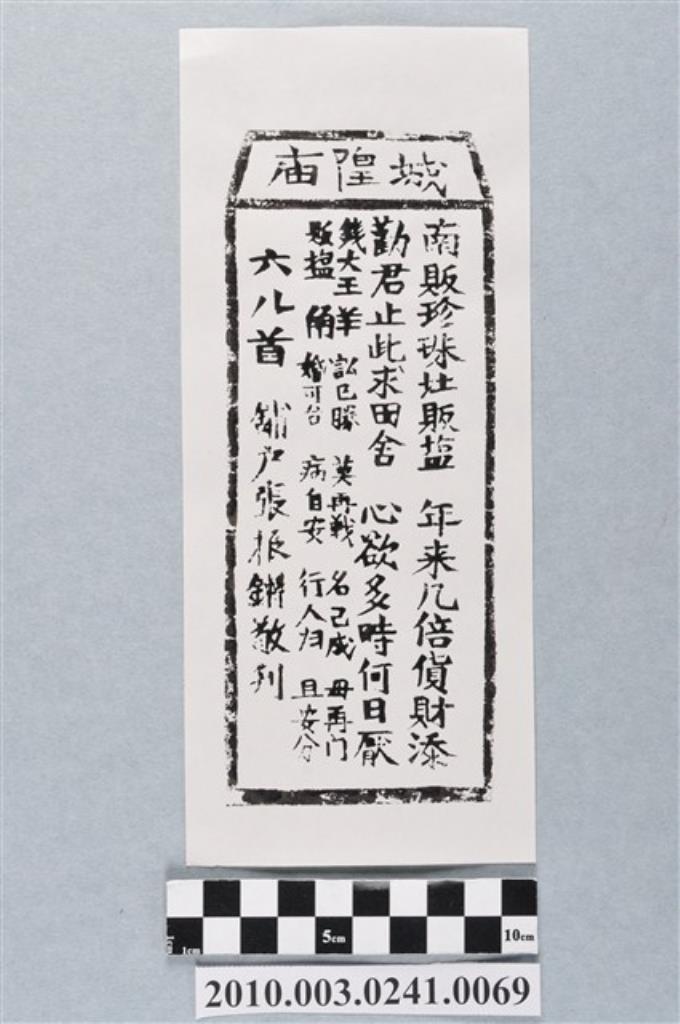 城隍庙
南販珍珠灶販盐 年来几倍貨財添
勸君止此求田舍 心欲多時何日厭
錢大王羊 訟已勝 莫再戰 名已成 毋再门
販揾角 婚可合 病自安 行人归 且安分
六八首 鋪户張振鏘敬刋
5cm
10cm
1cm
2010.003.0241.0069